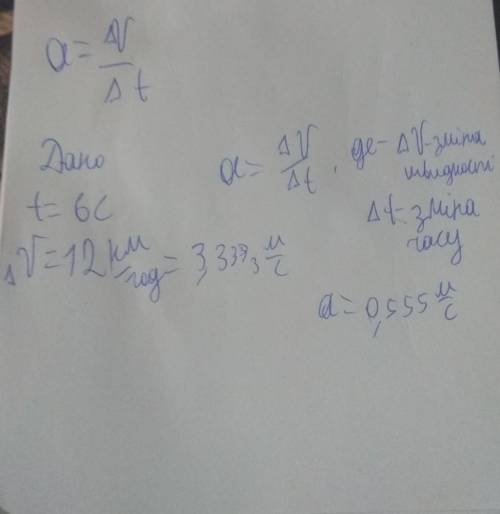 a = ΔV / Δt
Дано
t = 6с
ΔV = 12 км/год = 3,333 м/с
a = ΔV / Δt, де - ΔV - зміна швидкості
Δt - зміна часу
a = 0,555 м/с